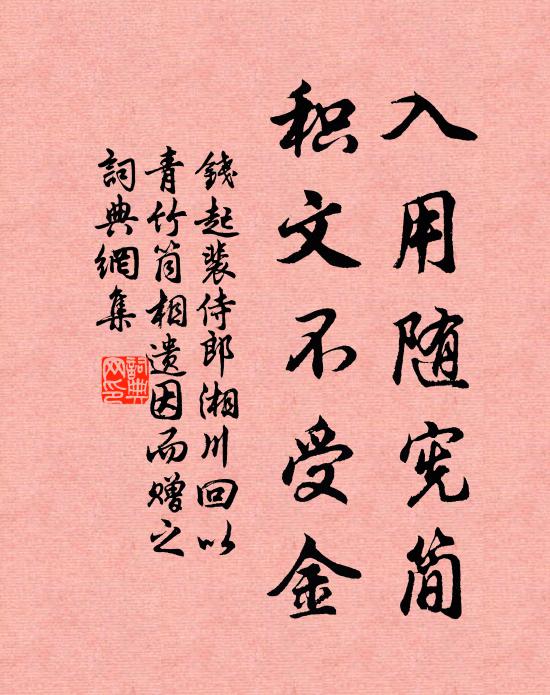 入用随宪简
积文不受金
錢起裴侍郎湘川回以
青竹筒相遗因而赠之
詞典網集
詞典
网印